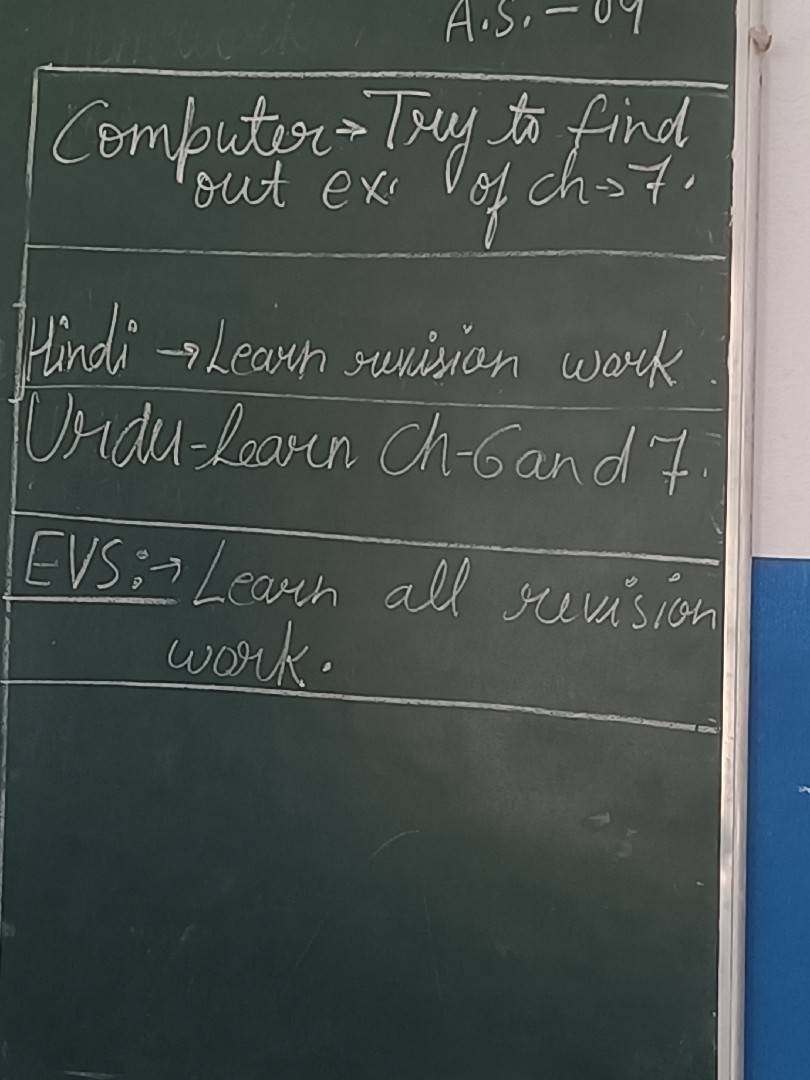 A.S. - 09
Computer → Try to find
out ex. of ch → 7.
Hindi → Learn revision work.
Urdu - Learn Ch - 6 and 7.
EVS :→ Learn all revision
work.